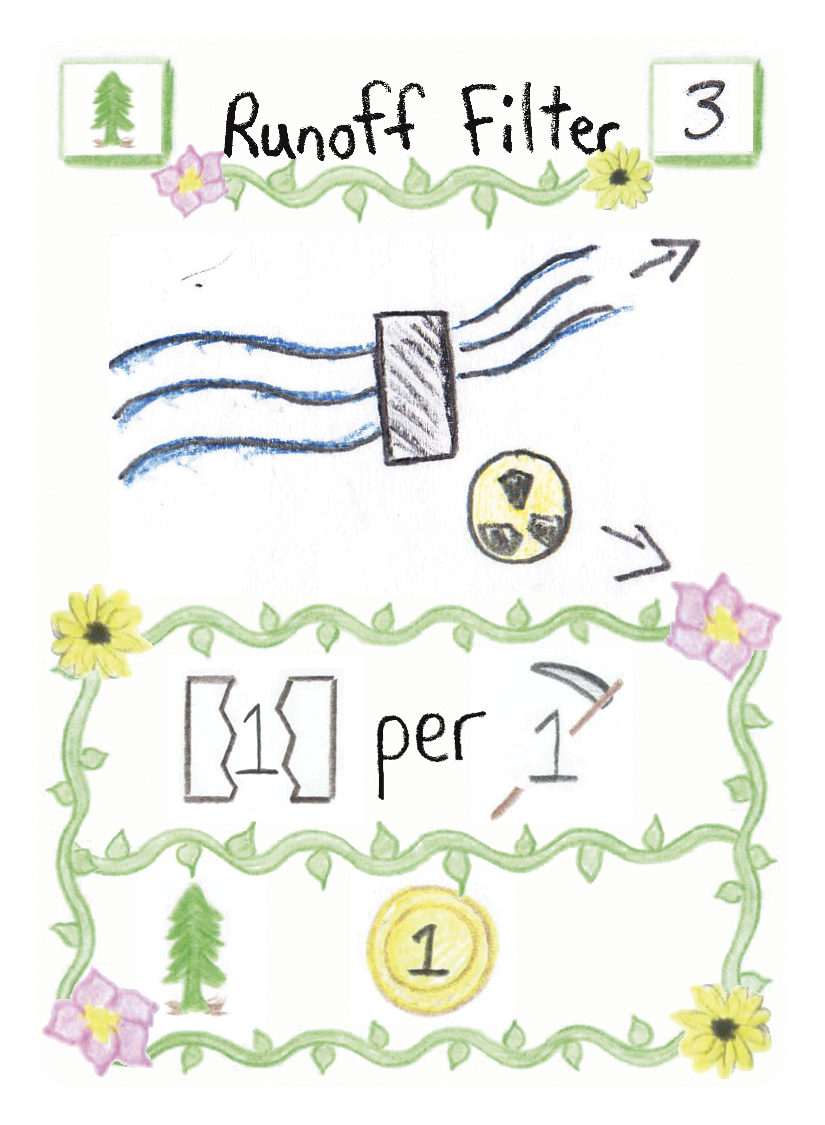 Runoff Filter
3
1 per 1
1